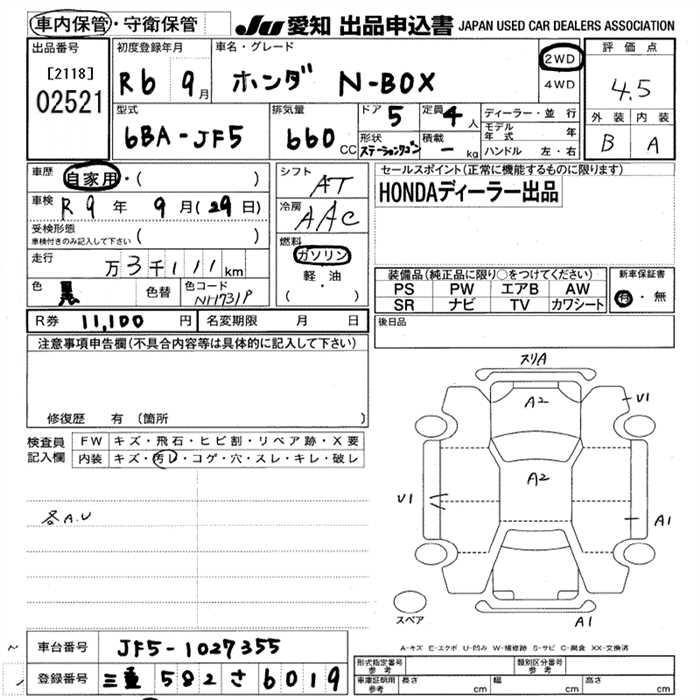 車内保管・守衛保管
JU 愛知 出品申込書 JAPAN USED CAR DEALERS ASSOCIATION
出品番号 初度登録年月 車名・グレード 評価点
[2118] 02521 R6 9月 ホンダ N-BOX 2WD 4WD 4.5
型式 排気量 ドア 定員 ディーラー・並行 外装 内装
6BA-JF5 660cc 5 4人 モデル年式 年 B A
形状 ステーションワゴン 積載 — kg ハンドル 左・右
車歴 自家用・( ) シフト AT セールスポイント(正常に機能するものに限ります)
車検 R9年 9月(29日) 冷房 AAC HONDAディーラー出品
受検形態
車検付きのみ記入して下さい ( ) 燃料
走行 万3千111km ガソリン・軽油 ( )
装備品(純正品に限り○をつけてください) 新車保証書
PS PW エアB AW 有・無
SR ナビ TV カワシート
色 黒 色替 色コード NH731P
R券 11,100円 名変期限 月 日 後日品
注意事項申告欄(不具合内容等は具体的に記入して下さい)
修復歴 有 (箇所 )
検査員記入欄 FW キズ・飛石・ヒビ割・リペア跡・X要
内装 キズ・汚レ・コゲ・穴・スレ・キレ・破レ
各A.U
スリA
A2
V1
A2
V1
A1
A1
スペア
A-キズ E-エクボ U-凹み W-補修跡 S-サビ C-腐食 XX-交換済
車台番号 JF5-1027355
登録番号 三重 582 さ 6019
形式指定番号参考 類別区分番号参考
車庫証明用参考 長さ cm 幅 cm 高さ cm